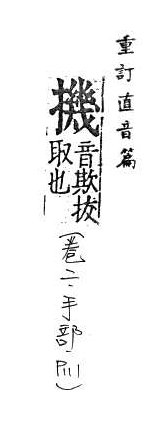 重訂直音篇
音欺拔
取也
(卷二·手部,P111)